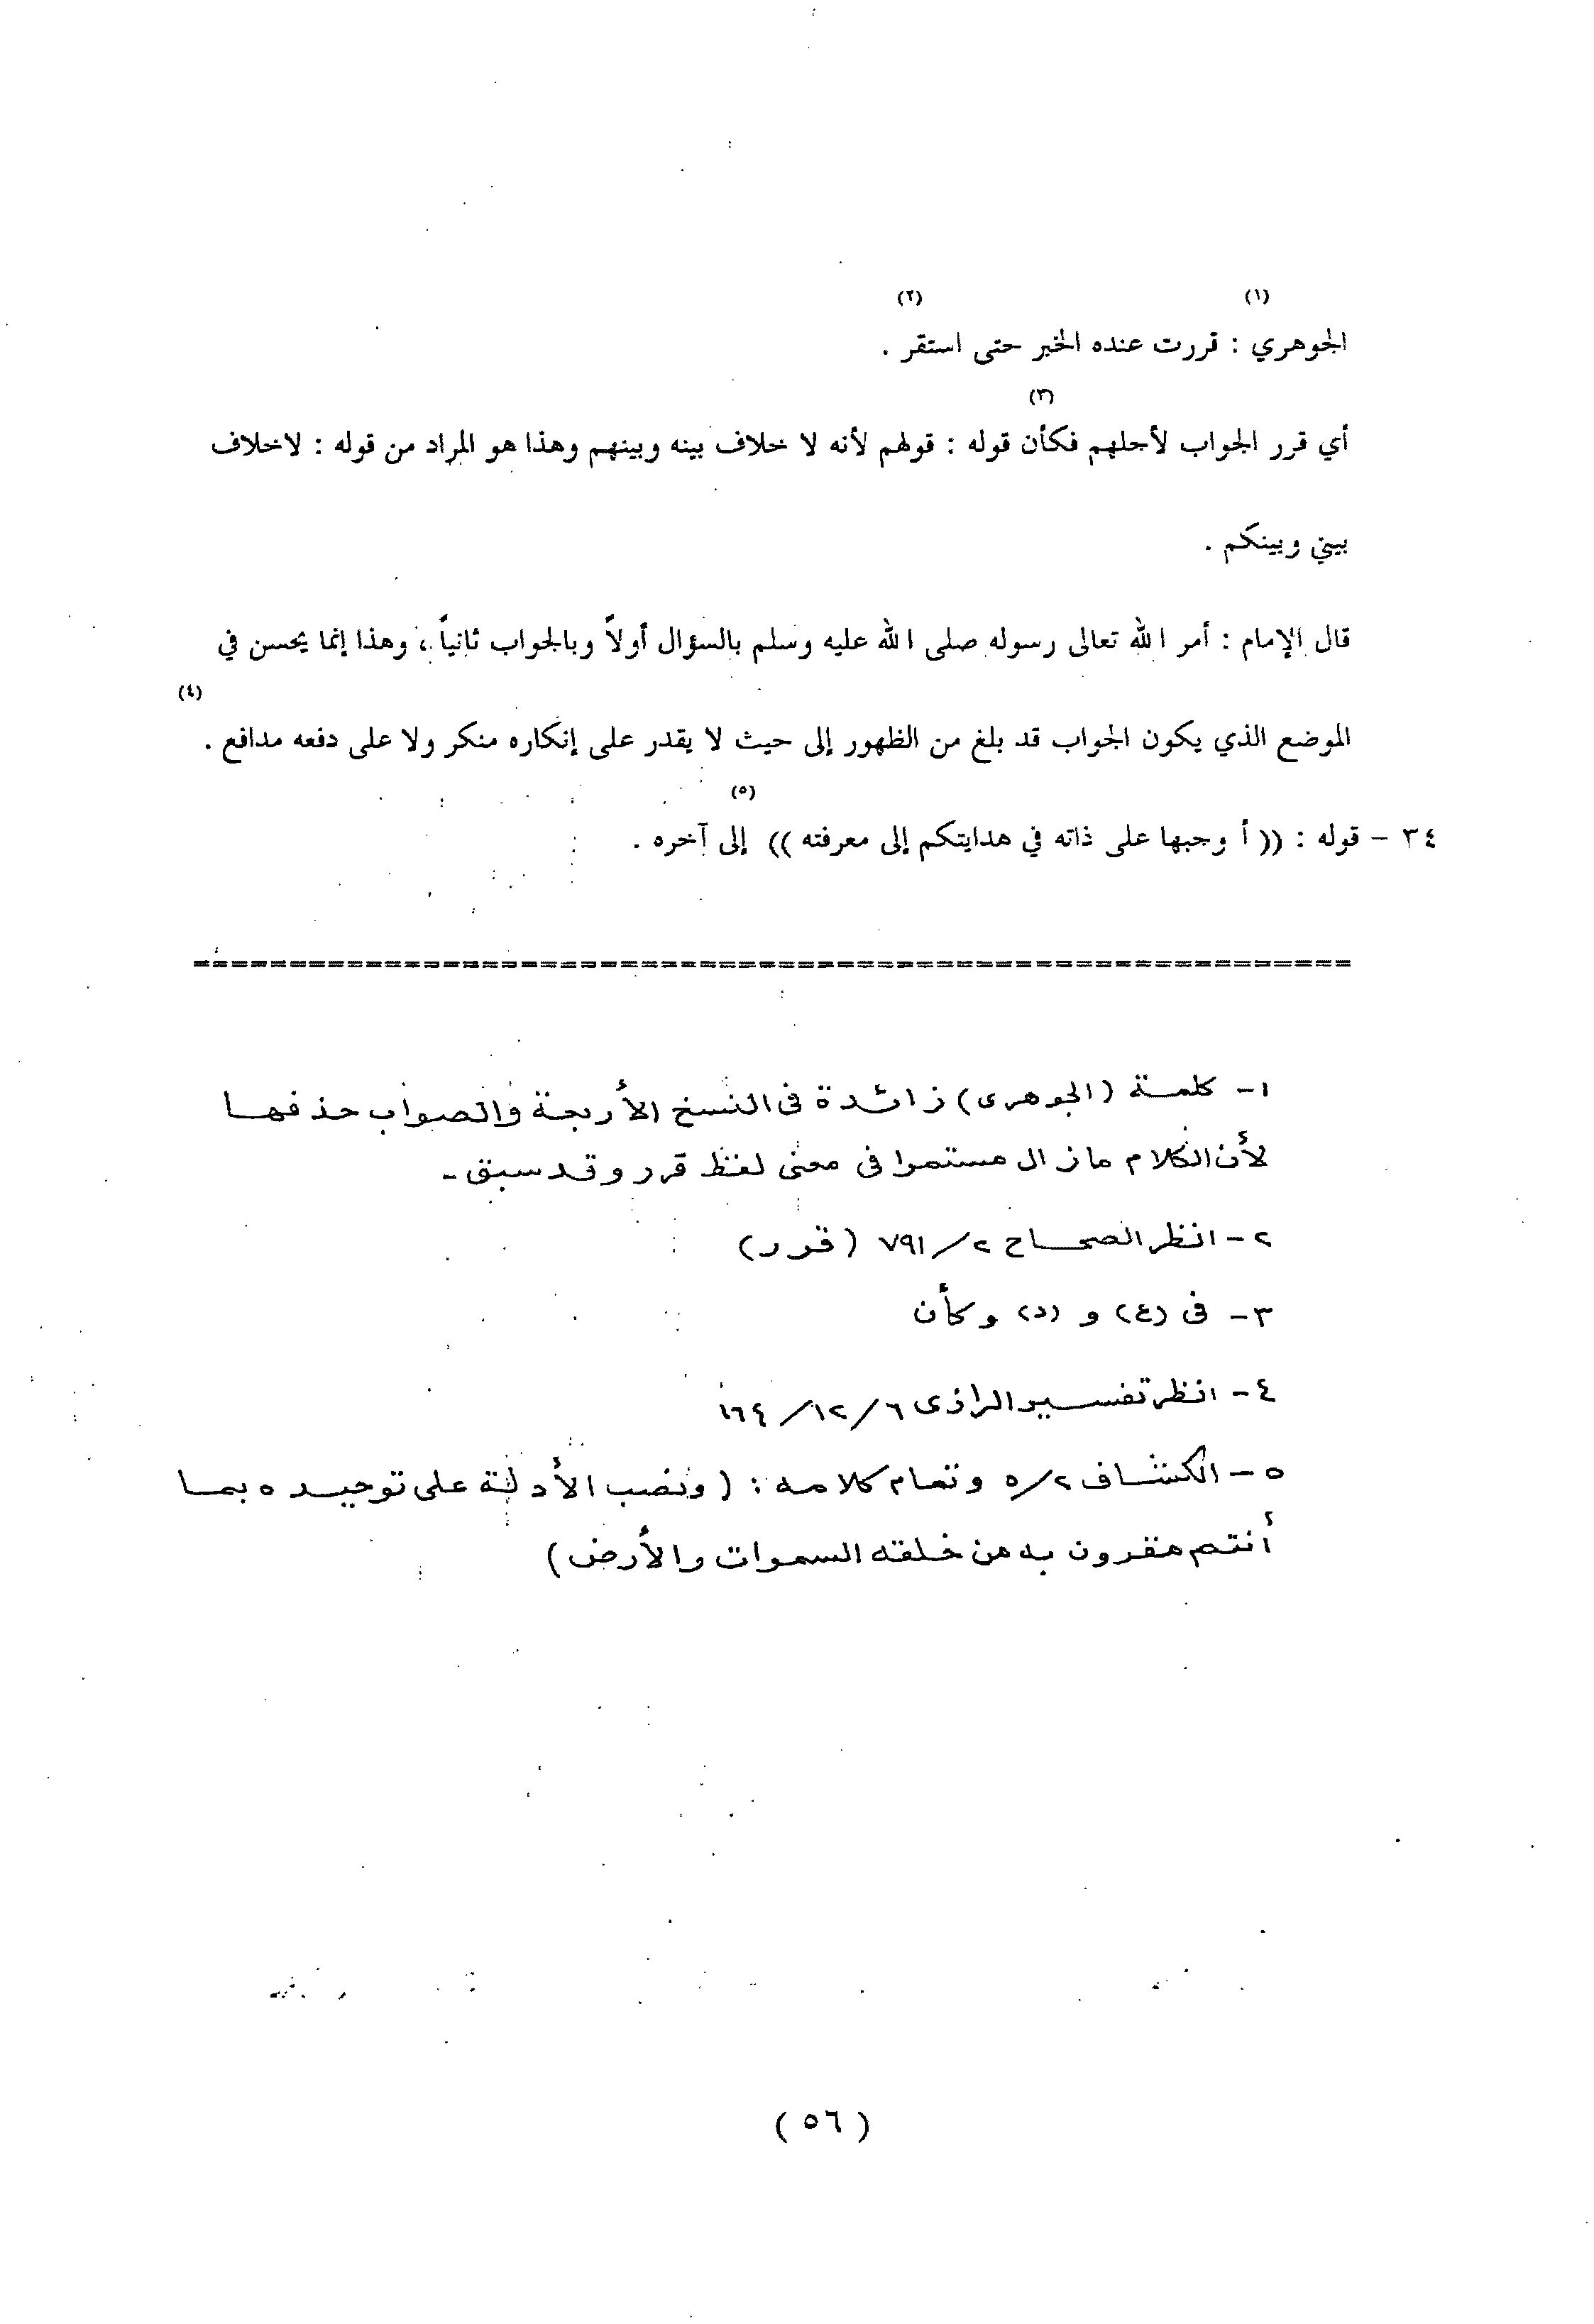 (١) (٢)
الجوهري : قررت عنده الخبر حتى استقر .
(٣)
أي قرر الجواب لأجلهم فكأن قوله : قولهم لأنه لا خلاف بينه وبينهم وهذا هو المراد من قوله : لاخلاف
بيني وبينكم .
قال الإمام : أمر الله تعالى رسوله صلى الله عليه وسلم بالسؤال أولاً وبالجواب ثانياً ، وهذا إنما يحسن في
(٤)
الموضع الذي يكون الجواب قد بلغ من الظهور إلى حيث لا يقدر على إنكاره منكر ولا على دفعه مدافع .
(٥)
٣٤ - قوله : (( أ وجبها على ذاته في هدايتكم إلى معرفته )) إلى آخره .
١- كلمة (الجوهرى) زائدة فى النسخ الأربعة والصواب حذفها
لأن الكلام مازال مستمرا فى معنى لفظ قرر وقد سبق -
٢- انظر الصحاح ٢/ ٧٩١ (قرر)
٣- فى (ع) و (د) وكأن
٤- انظر تفسير الرازى ٦/ ١٢/ ١٦٤
٥- الكشاف ٢/ ٥ وتمام كلامه : ( ونصب الأدلة على توحيده بما
أنتم مقرون به من خلقه السموات والأرض )
( ٥٦ )